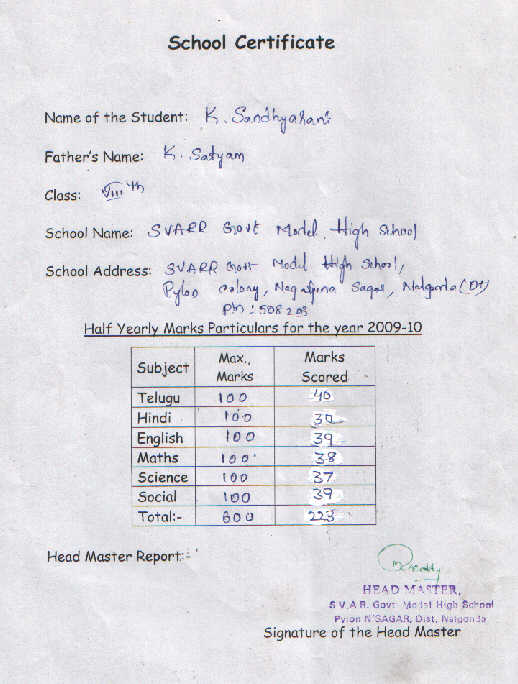 School Certificate
Name of the Student: K. Sandhyarani
Father's Name: K. Satyam
Class: VIII th
School Name: SVARR Govt Model High School
School Address: SVARR Govt Model High School,
Pylon colony, Nagarjuna Sagar, Nalgonda (Dt)
Pin: 508203
Half Yearly Marks Particulars for the year 2009-10
Subject Max., Marks Marks Scored
Telugu 100 40
Hindi 100 30
English 100 39
Maths 100 38
Science 100 37
Social 100 39
Total:- 600 223
Head Master Report:-
HEAD MASTER,
S.V.A.R. Govt. Model High School
Pylon N'SAGAR, Dist. Nalgonda
Signature of the Head Master